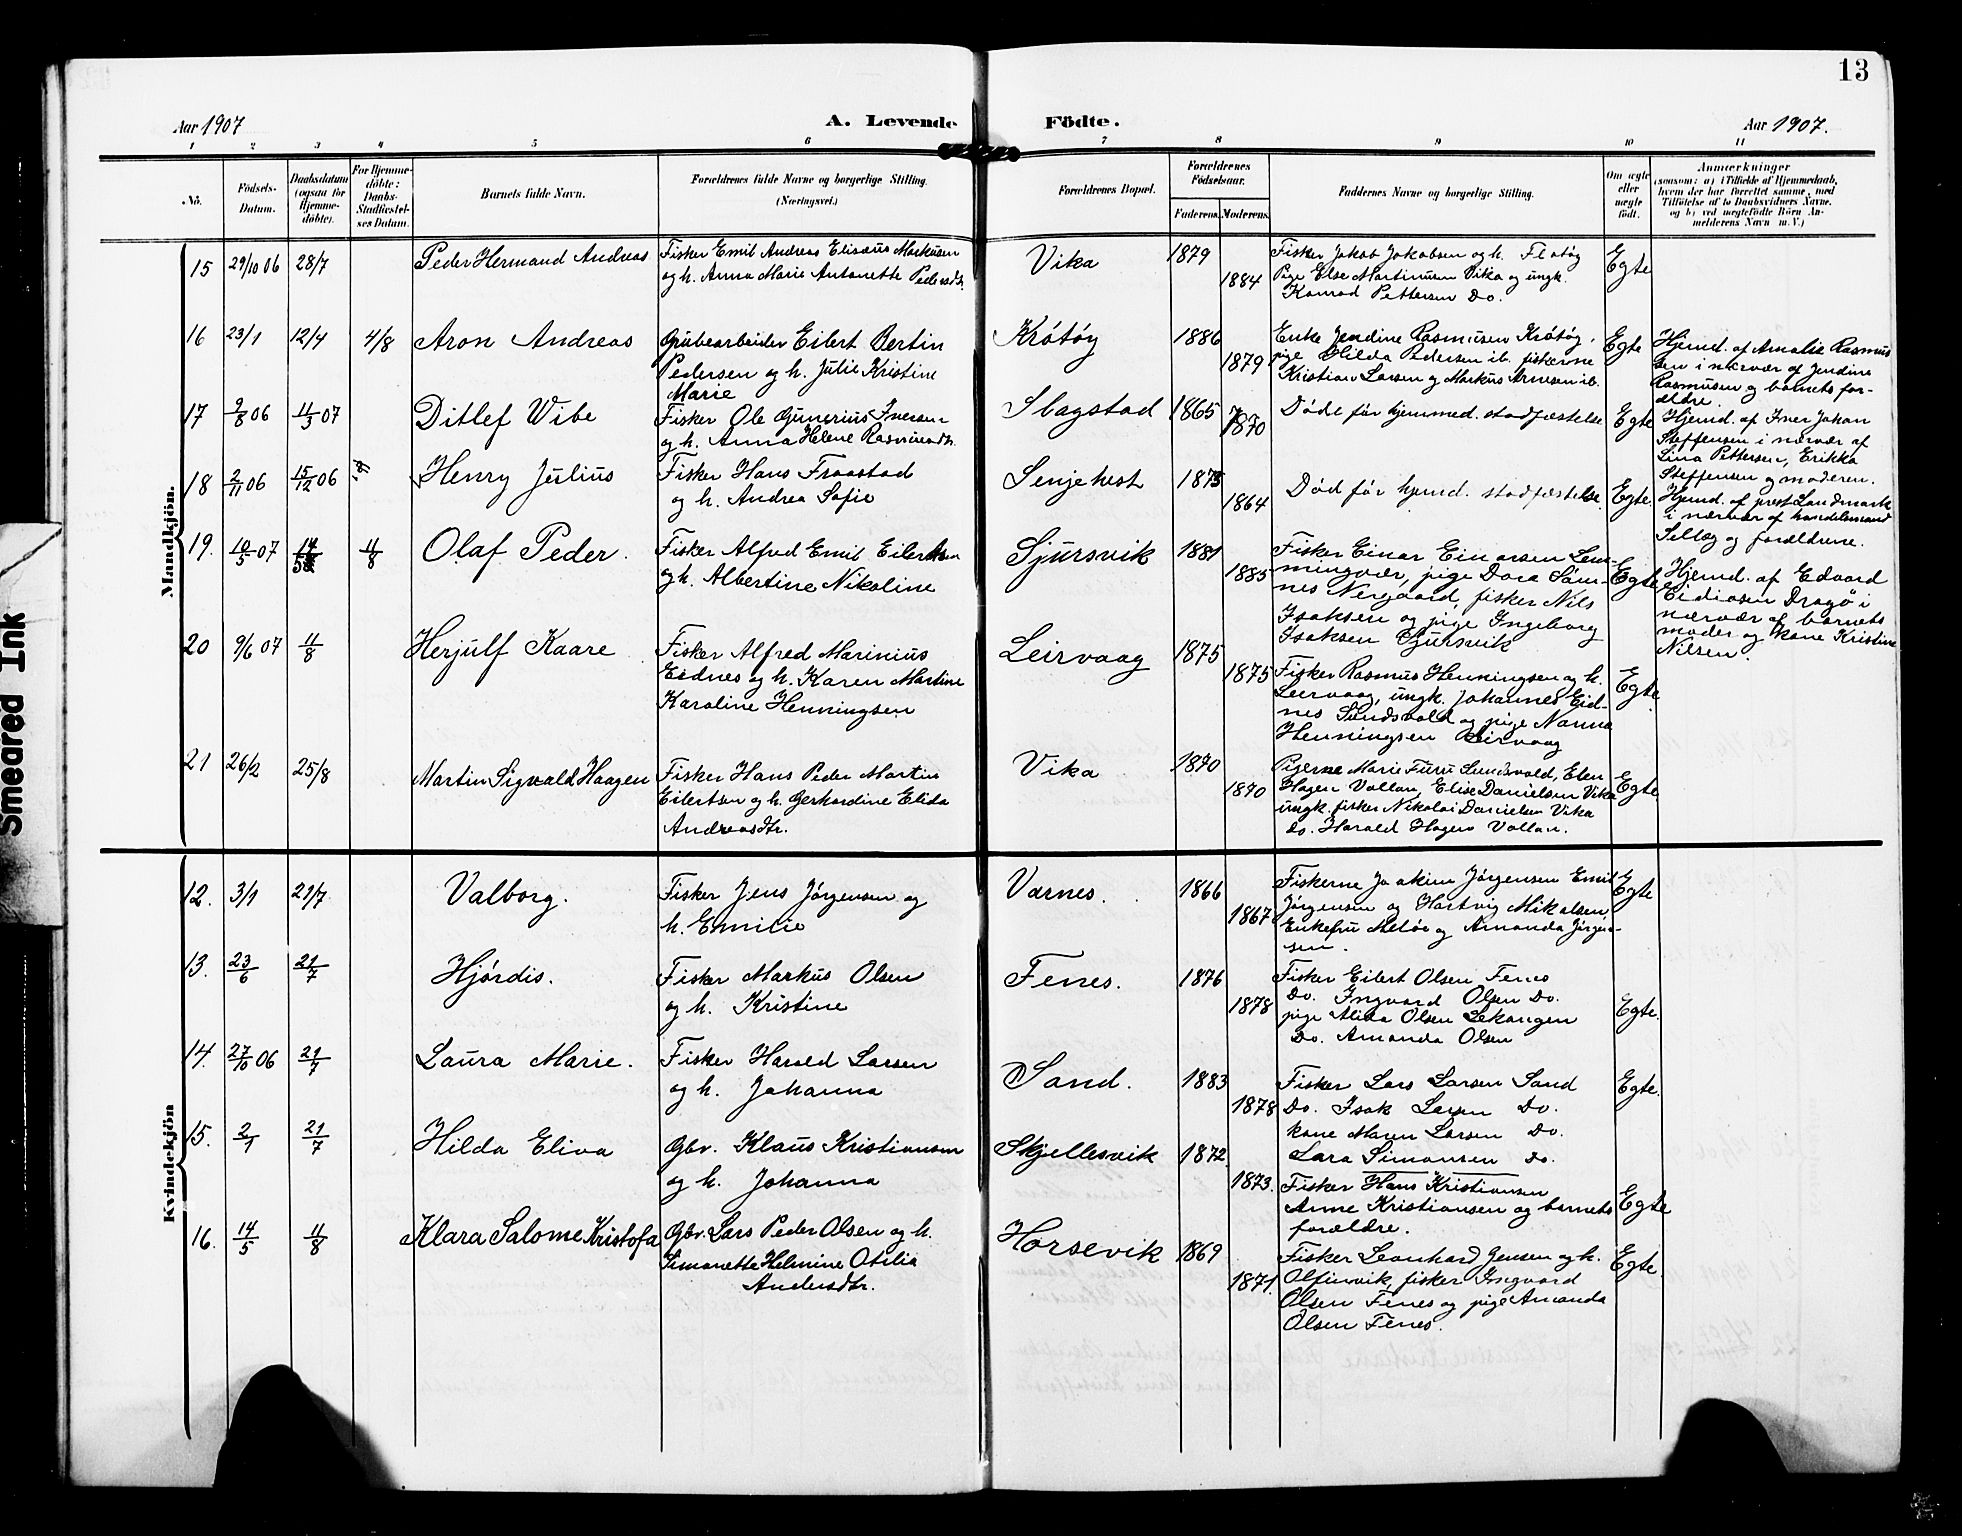 13
Aar 1907
A. Levende Födte.
Aar 1907.
1 2 3 4 5 6 7 8 9 10 11
No.
Födsels-Datum.
Daabsdatum (ogsaa for Hjemme-döbte).
For Hjemme-döbte: Daabs-Stadfæstel-ses Datum.
Barnets fulde Navn.
Forældrenes fulde Navne og borgerlige Stilling.
(Næringsvei.)
Forældrenes Bopæl.
Forældrenes Födselsaar.
Faderens.
Moderens.
Faddernes Navne og borgerlige Stilling.
Om ægte eller uægte födt.
Anmærkninger
(saasom: a) i Tilfælde af Hjemmedaab,
hvem der har forrettet samme, med
Tilföielse af to Daabsvidners Navne,
og b) ved uægtefödte Börn An-
melderens Navn m. V.)
Mandkjön.
15 29/10 06 28/7 Peder Hermand Andreas
Fisker Emil Andreas Eliseus Markusen
og h. Anna Marie Antonette Pedersdtr.
Vika 1879 1884
Fisker Jakob Jakobsen og h. Flatøy
Pige Else Martinusen Vika og ungk.
Konrad Pettersen Do.
Egte
16 23/1 12/4 4/8 Aron Andreas
Grubearbeider Eilert Bertin
Pedersen og h. Julie Kristine
Marie
Krötöy 1886 1879
Enke Jendine Rasmusen Krötöy,
pige Hilda Pedersen ib. fiskerne
Kristian Larsen og Markus Arnesen ib.
Egte
Hjemd. af Amalie Rasmus
sen i nærvær af Jendine
Rasmusen og barnets for-
ældre.
17 9/8 06 11/3 07 Ditlef Wibe
Fisker Ole Gunerius Iversen
og h. Anna Helene Rasmusdtr.
Slagstad 1865 1870
Døde før hjemmed. stadfæstelse
Egte
Hjemd. af Iver Johan
Steffensen i nærvær af
Lina Pettersen, Erikka
Steffensen og moderen.
18 2/11 06 15/12 06 Henry Julius
Fisker Hans Fraastad
og h. Andrea Sofie
Senjehest 1873 1864
Død før hjemd. stadfæstelse
Egte.
Hjemd. af prest Landmark
i nærvær af handelsmand
Selboe og forældrene.
19. 10/5 07 11/8 Olaf Peder.
Fisker Alfred Emil Eilertsen
og h. Albertine Nikoline
Sjursvik 1881 1885
Fisker Einar Einarsen Lem-
mingvær, pige Dora Søm-
nes Nergaard, fisker Nils
Isaksen og pige Ingeborg
Isaksen Sjursvik
Egte
Hjemd. af Edvard
Eidiasen Dragö i
nærvær af barnets
moder og kone Kristine
Nilsen.
20 9/6 07 11/8 Herjulf Kaare
Fisker Alfred Marinius
Eidnes og h. Karen Martine
Karoline Henningsen
Leirvaag 1875 1875
Fisker Rasmus Henningsen og h.
Leirvaag, ungk. Johannes Eid-
nes Sundsvold og pige Nanna
Henningsen Leirvaag
Egte.
21 26/2 25/8 Martin Sigvald Haagen
Fisker Hans Peder Martin
Eilertsen og h. Gerhardine Elida
Andreasdtr.
Vika 1870 1870
Pigerne Marie Furu Sundsvold, Elen
Hagen Vollan, Elise Danielsen Vika
ungk. fisker Nikolai Danielsen Vika
do. Harald Hagen Vollan.
Egte.
Kvindekjön
12. 3/1 21/7 Valborg.
Fisker Jens Jørgensen og
h. Emilie
Varnes. 1866 1867
Fiskerne Joakim Jørgensen Emil
Jørgensen og Hartvig Mikalsen,
Enkefru Meløe og Amanda Jørgen-
sen.
Egte
13. 23/6 21/7 Hjördis.
Fisker Markus Olsen
og h. Kristine
Fenes. 1876 1878
Fisker Eilert Olsen Fenes
Do. Ingvard Olsen Do.
pige Alida Olsen Lekangen
Do. Amanda Olsen
Egte.
14. 27/10 06 21/7 Laura Marie.
Fisker Harald Larsen
og h. Johanna
Sand. 1883 1878
Fisker Lars Larsen Sand
Do. Isak Larsen Do.
kone Maren Larsen Do.
Lara Simonsen Do.
Egte.
15. 2/1 21/7 Hilda Eliva
Gbr. Klaus Kristiansen
og h. Johanna
Skjellesvik 1872 1873.
Fisker Hans Kristiansen
Anne Kristiansen og barnets
forældre.
Egte
16. 14/5 11/8 Klara Salome Kristofa
Gbr. Lars Peder Olsen og h.
Simonette Helmine Otilie
Andersdtr.
Horsevik 1869 1871.
Fisker Leonhard Jensen og h.
Olfinvik, fisker Ingvard
Olsen Fenes og pige Amanda
Olsen Fenes.
Egte.
Smeared Ink